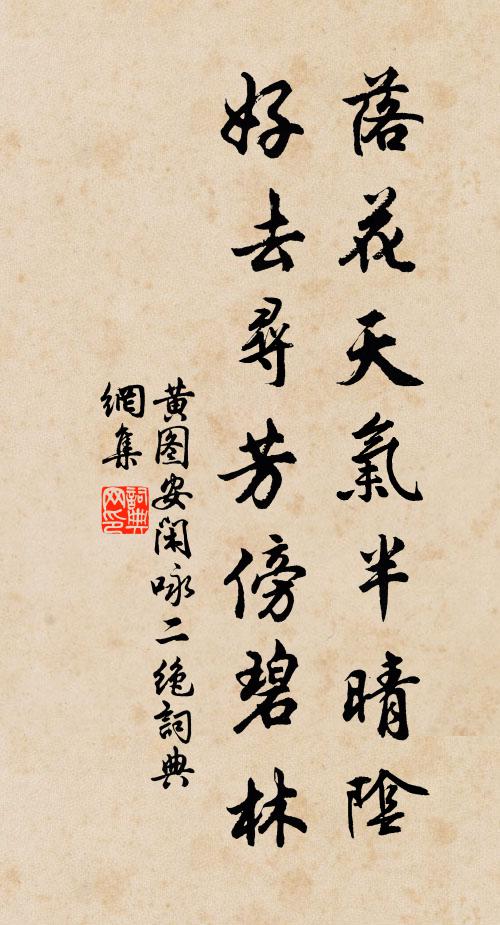 落花天氣半晴陰
好去尋芳傍碧林
黄图安閑咏二绝詞典
網集
詞典
网印